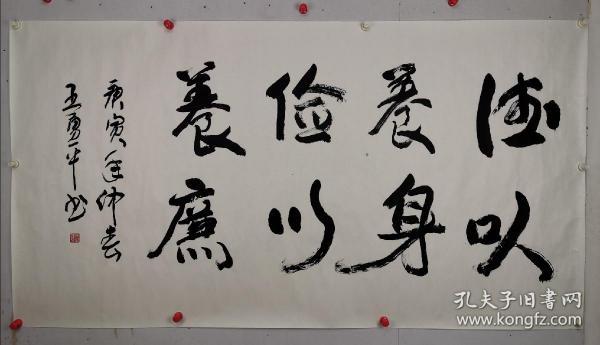 德以
養身
儉以
養廉
庚寅年仲春
王勇平书
孔夫子旧書网
www.kongfz.com